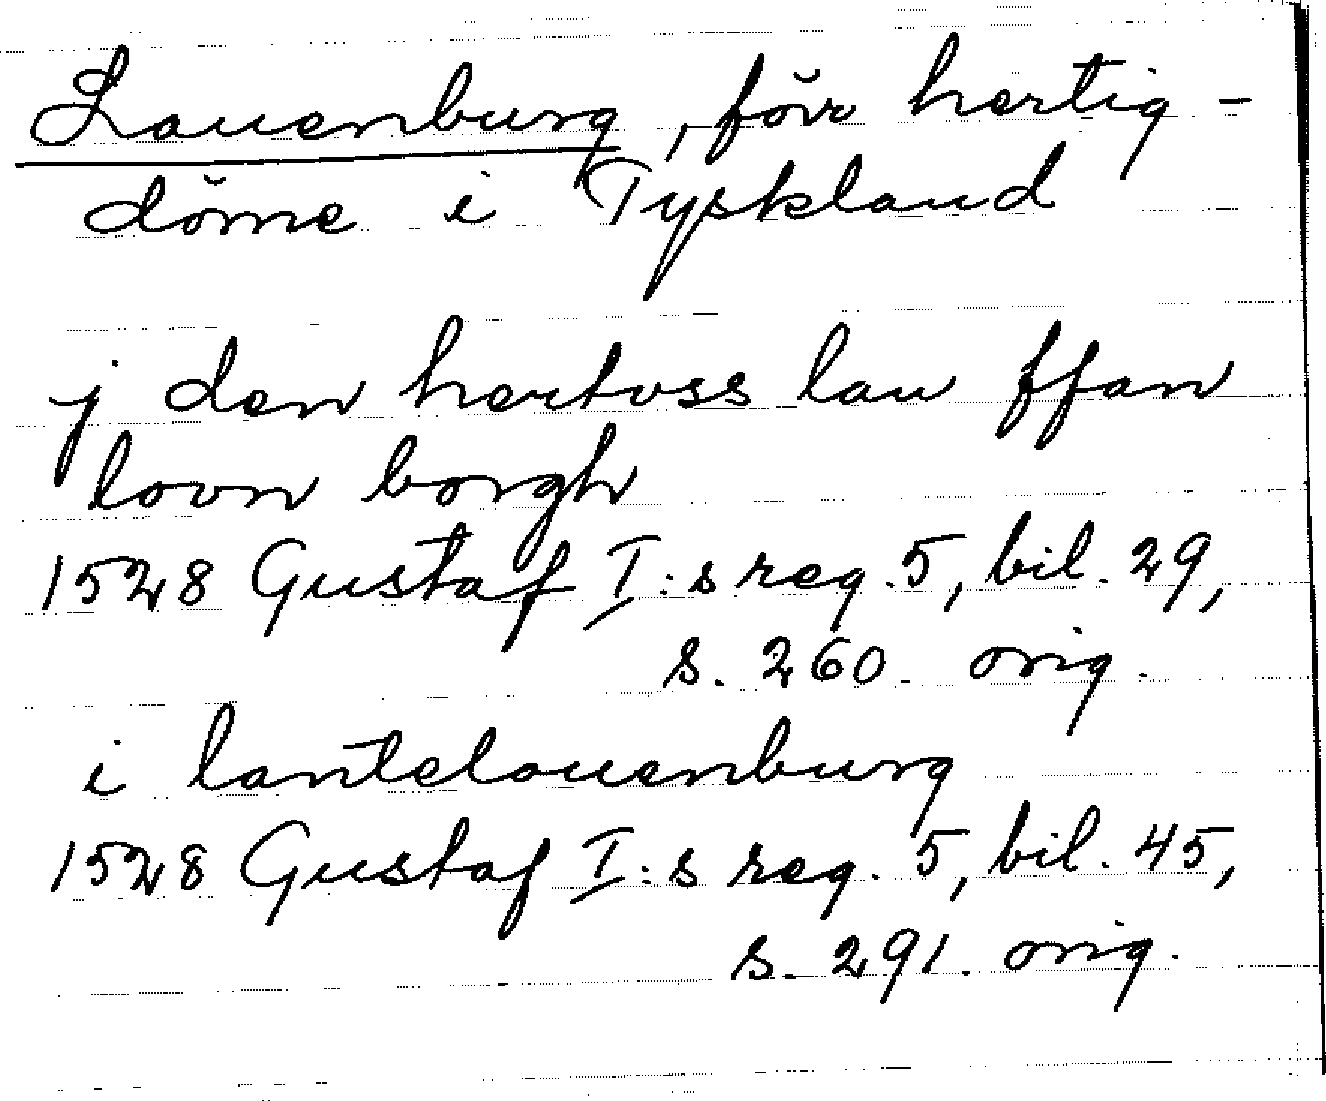 Lauenburg, förr hertig-
döme i Tyskland
j den hertoss lau ffan
lovn borgh
1528 Gustaf I:s reg. 5, bil. 29,
s. 260. orig.
i lantelauenburg
1528 Gustaf I:s reg. 5, bil. 45,
s. 291. orig.